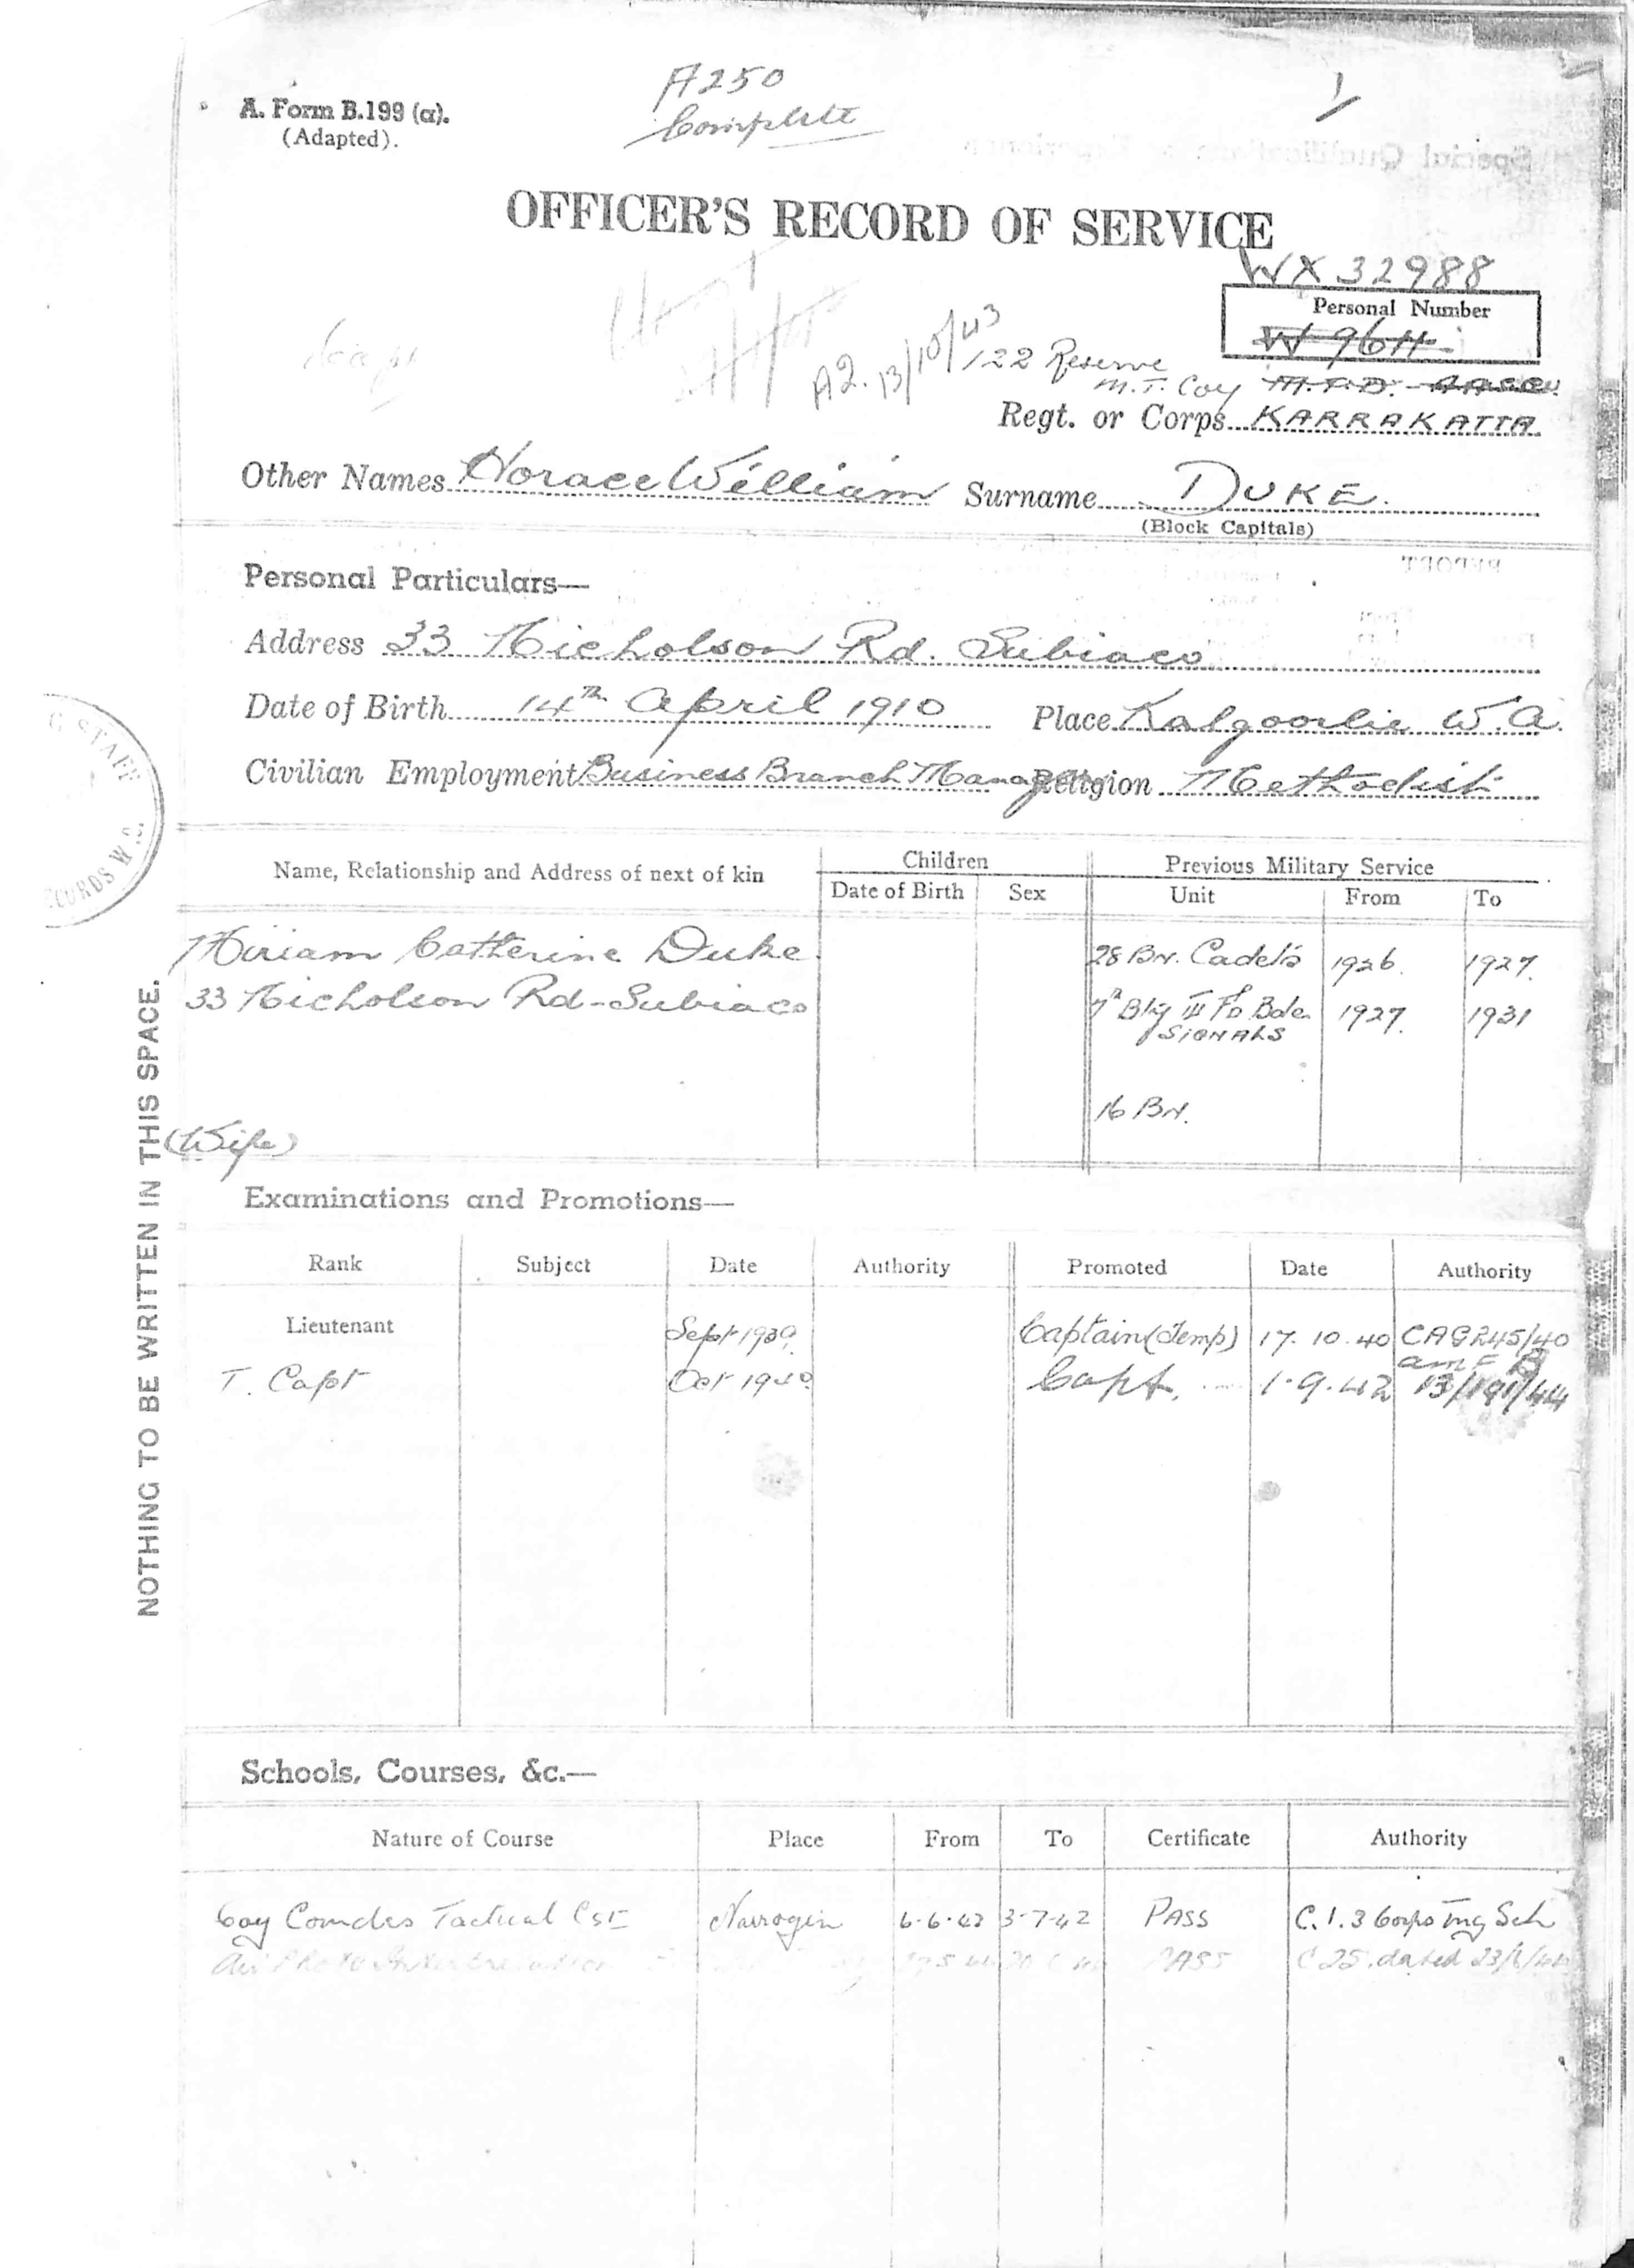 A250
Complete
A. Form B.199 (a).
(Adapted).
OFFICER'S RECORD OF SERVICE
WX 32988
Personal Number
W 9611
A2. 13/10/43
122 Reserve
M.T. Coy M.T.D.
Regt. or Corps KARRAKATTA
Other Names Horace William Surname DUKE.
(Block Capitals)
Personal Particulars—
Address 33 Nicholson Rd. Subiaco
Date of Birth 14th April 1910 Place Kalgoorlie W.A.
Civilian Employment Business Branch Manager Religion Methodist
Name, Relationship and Address of next of kin Children Previous Military Service
Date of Birth Sex Unit From To
Miriam Catherine Duke 28 Bn. Cadets 1926. 1927.
33 Nicholson Rd-Subiaco 7th Bty III Fd Bde. 1927. 1931
SIGNALS
16 Bn.
(Wife)
NOTHING TO BE WRITTEN IN THIS SPACE.
Examinations and Promotions—
Rank Subject Date Authority Promoted Date Authority
Lieutenant Sept 1939. Captain (Temp) 17.10.40 CAGR45/40
T. Capt Oct 1940 Capt. 1.9.42 13/191/44
Schools, Courses, &c.—
Nature of Course Place From To Certificate Authority
Coy Comdrs Tactical Cse Narrogin 6-6-42 3-7-42 PASS C.1.3 Corps Tng Sch
PASS C 25. dated